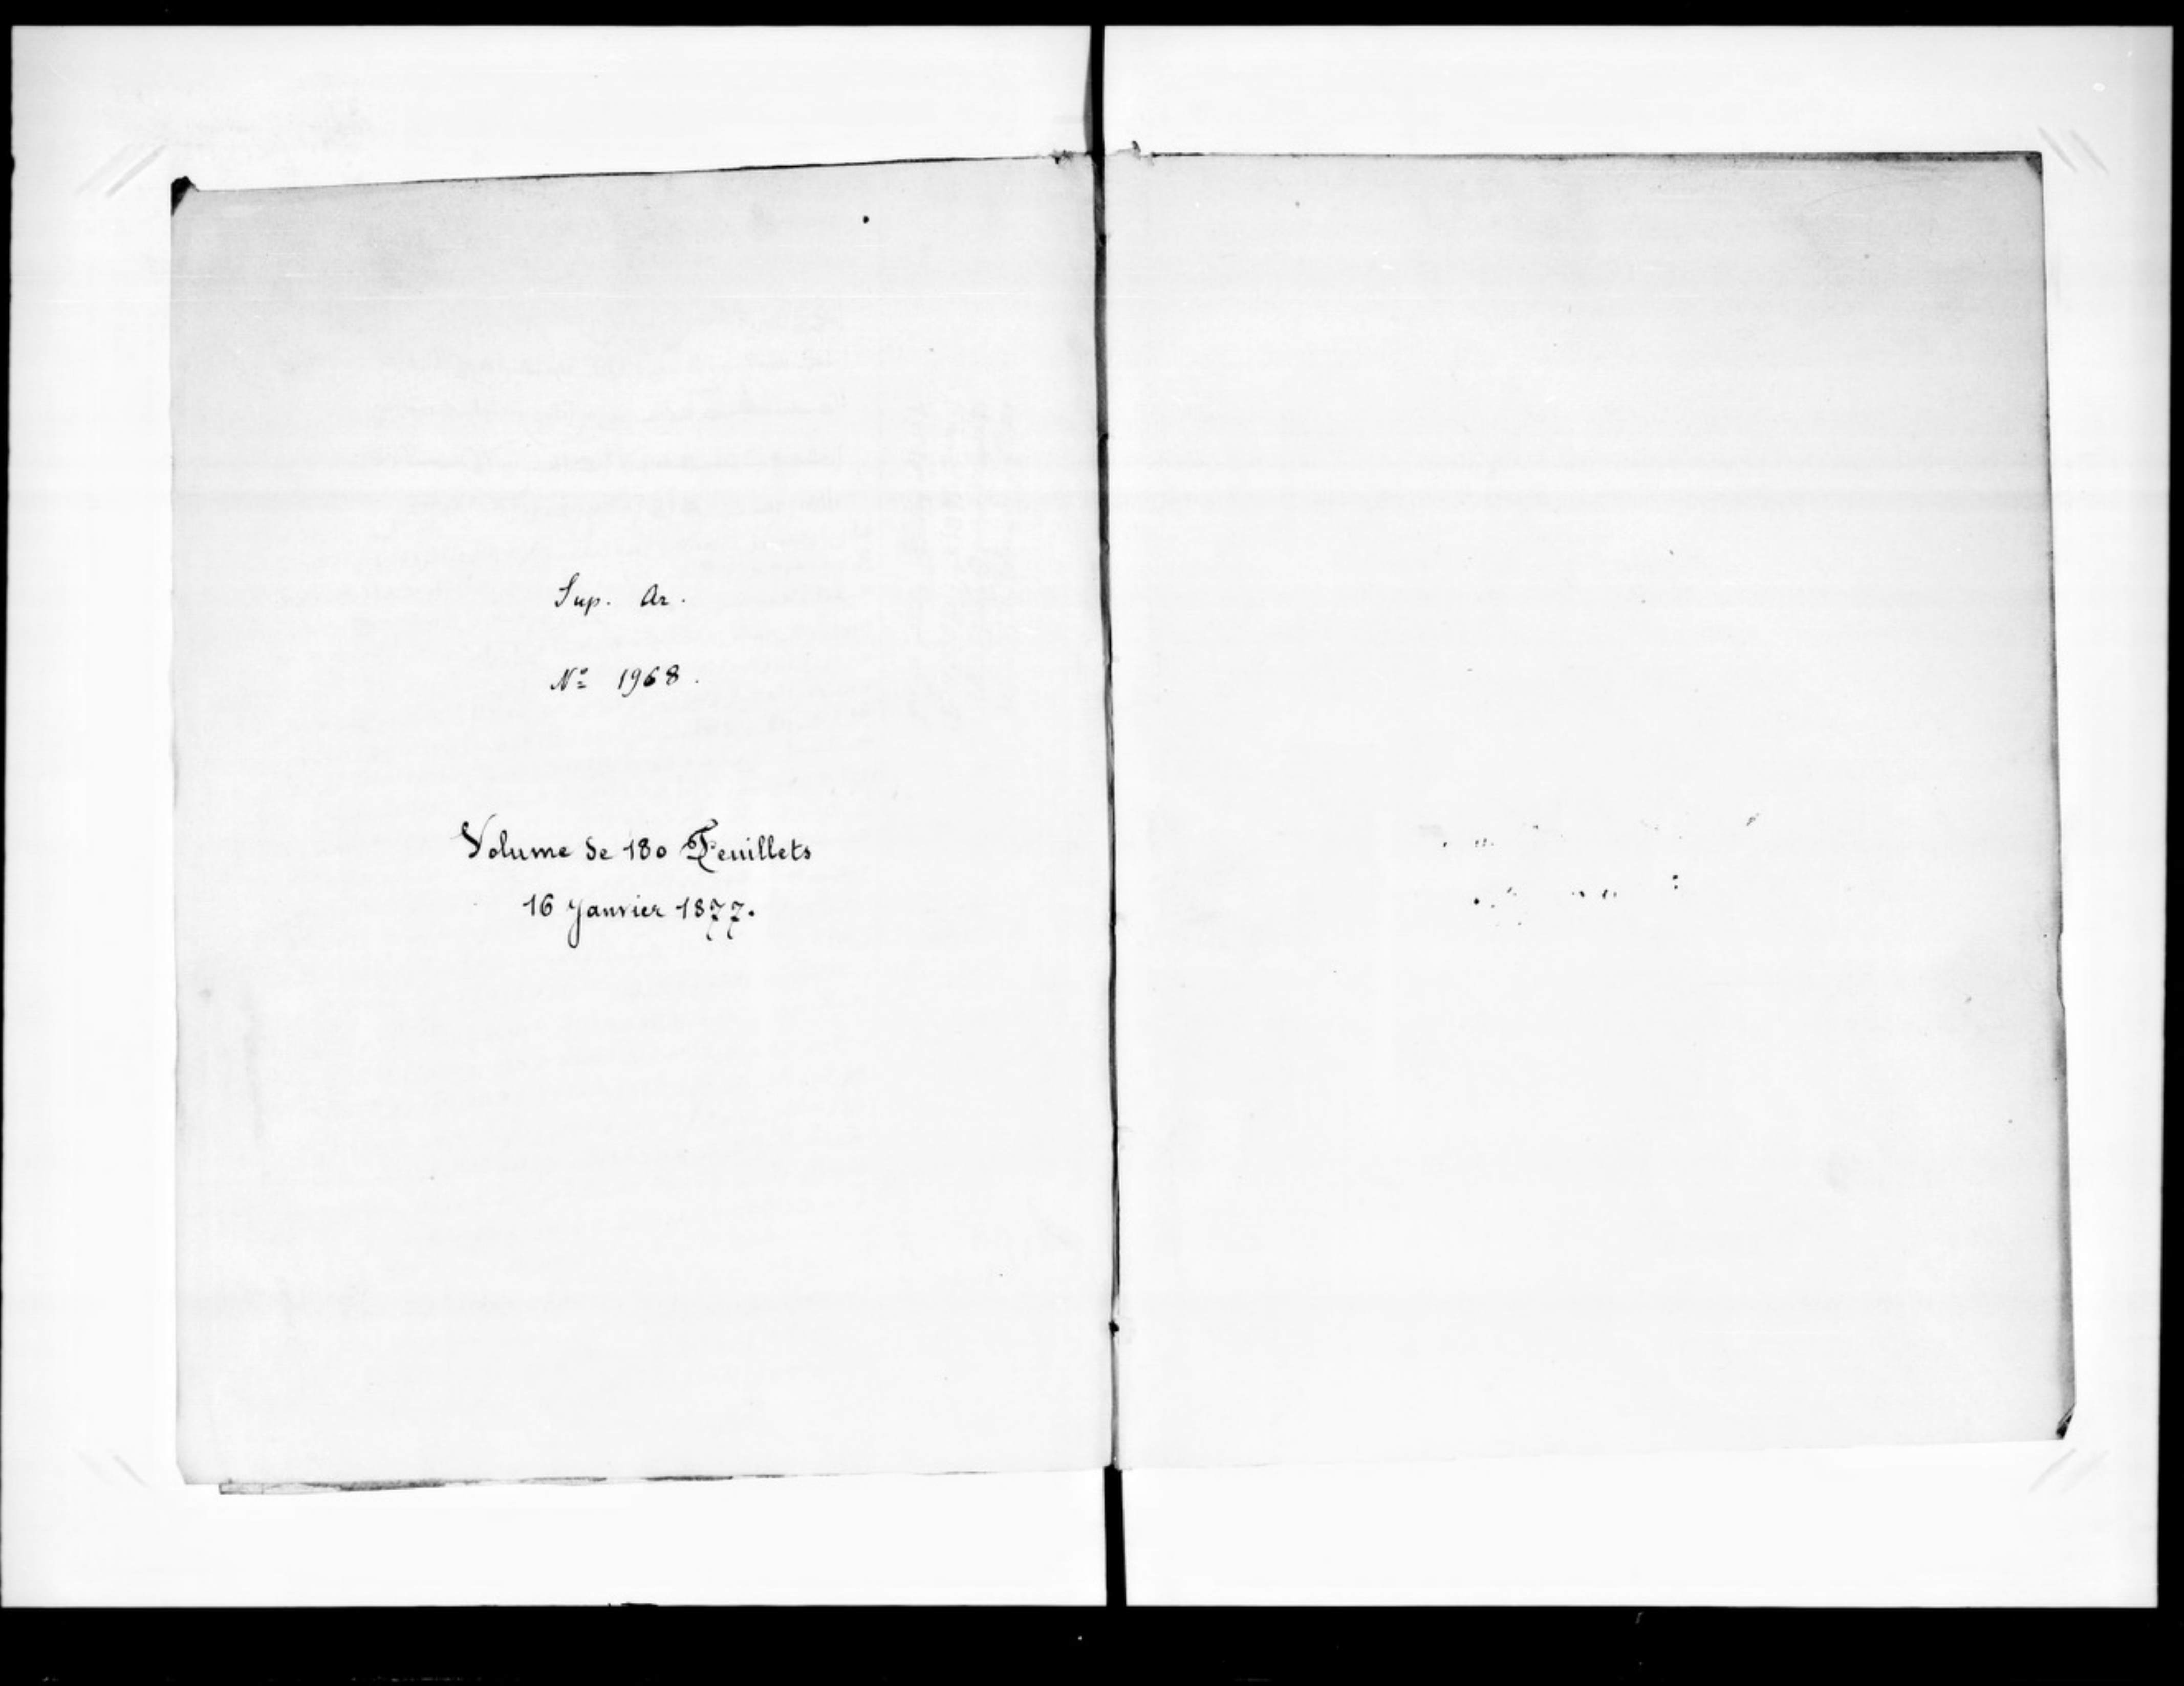 Sup. Ar.
Nº 1968.
Volume de 180 Feuillets
16 Janvier 1877.